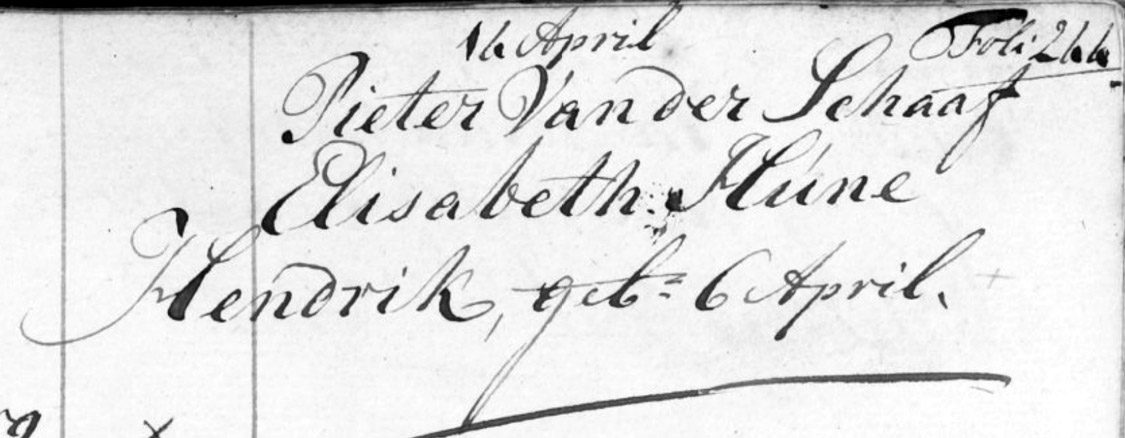 16 April Foli 266
Pieter Van der Schaaf
Elisabeth Húne
Hendrik, geb= 6 April.
x